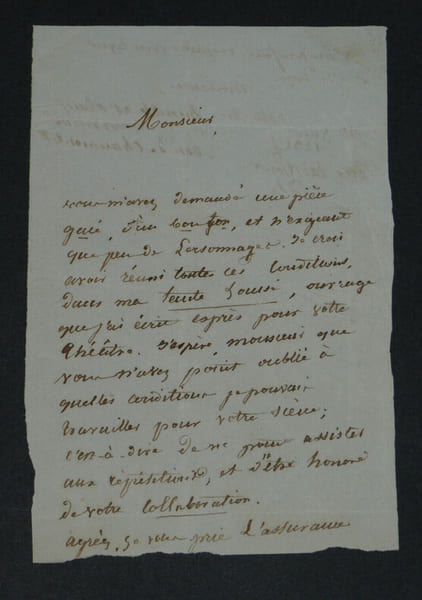 Monsieur,
vous m'avez demandé une pièce
gaie, d'un bon ton, et n'exigeant
que peu de Personnages. Je crois
avoir réuni toutes ces conditions,
dans ma tante, ouvrage
que j'ai écrit exprès pour votre
théâtre. J'espère, monsieur que
vous n'avez point oublié à
quelles conditions je pouvais
travailler pour votre scène;
c'est-à-dire de ne point assister
aux répétitions, et d'être honoré
de votre collaboration.
agréez, je vous prie L'assurance